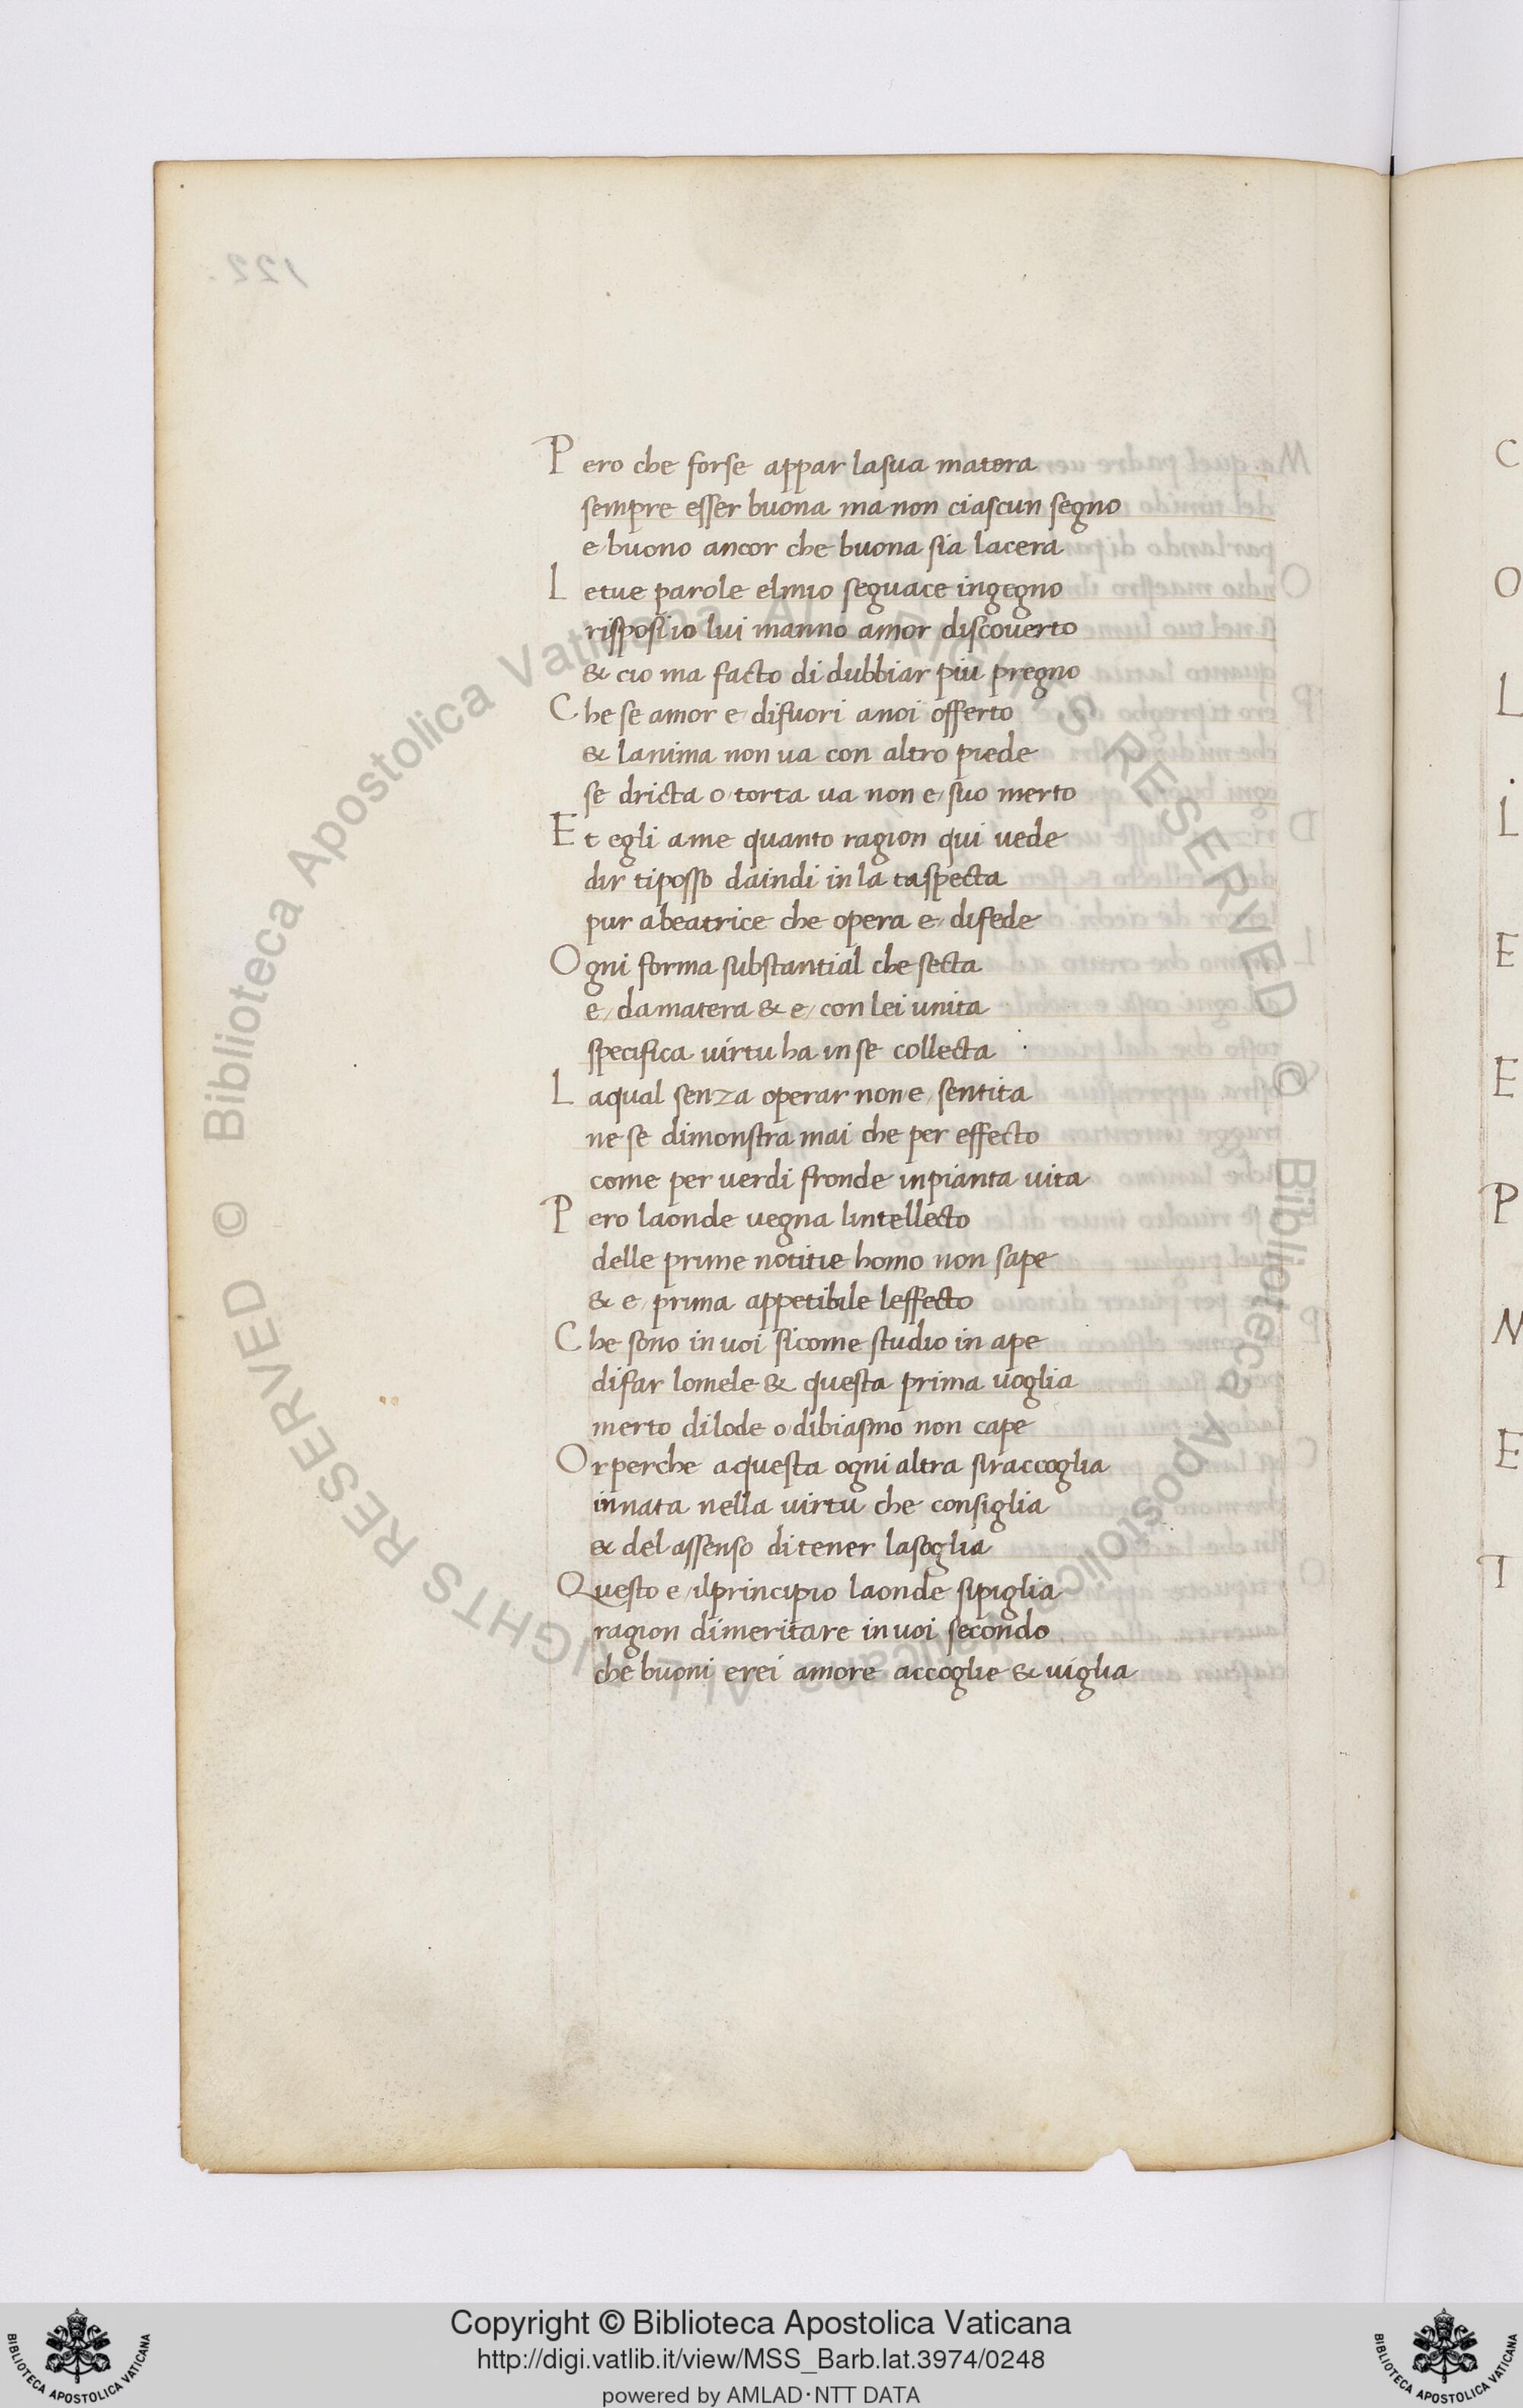 Pero che forse appar lasua matera
sempre esser buona ma non ciascun segno
e buono ancor che buona sia lacera
Letue parole elmio seguace ingegno
risposi io lui manno amor discoverto
& cio ma facto di dubbiar piu pregno
Che se amor e difuori anoi offerto
& lanima non va con altro piede
se dricta o torta va non e suo merto
Et egli ame quanto ragion qui vede
dir tiposso daindi in la taspecta
pur abeatrice che opera e difede
Ogni forma substantial che secta
e damatera & e con lei unita
specifica virtu ha in se collecta
Laqual senza operar non e sentita
ne se dimonstra mai che per effecto
come per verdi fronde inpianta vita
Pero laonde vegna lintellecto
delle prime notitie homo non sape
& e prima appetibile leffecto
Che sono in voi sicome studio in ape
difar lomele & questa prima voglia
merto dilode o dibiasmo non cape
Or perche aquesta ogni altra siraccoglia
innata nella virtu che consiglia
& del assenso di tener lasoglia
Questo e ilprincipio laonde sipiglia
ragion dimeritare in voi secondo
che buoni erei amore accoglie & viglia
122.
C
O
L
L
E
E
P
N
E
T
© Biblioteca Apostolica Vaticana ALL RIGHTS RESERVED © Biblioteca Apostolica Vaticana ALL RIGHTS RESERVED
Copyright © Biblioteca Apostolica Vaticana
http://digi.vatlib.it/view/MSS_Barb.lat.3974/0248
powered by AMLAD·NTT DATA
BIBLIOTECA APOSTOLICA VATICANA
BIBLIOTECA APOSTOLICA VATICANA